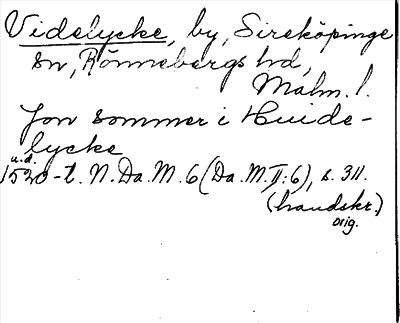 Videlycke, by, Sireköpinge
sn, Rönnebergs hd,
Malm. l.
Jon sommer i Huide-
lycke
u.d.
1520-t. N. Da. M. 6 (Da. M. II:6), s. 311.
(handskr.)
orig.